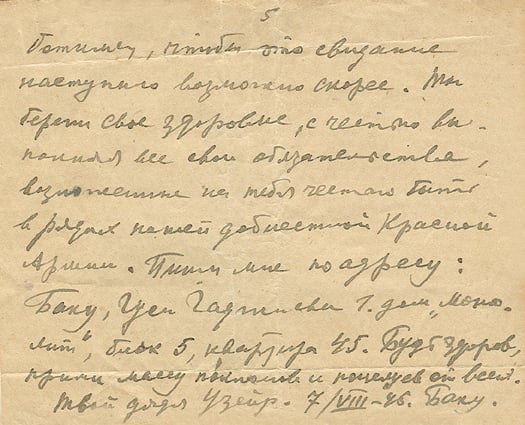 5
чтобы это свидание
наступило возможно скорее. Ты
береги свое здоровье, с честью вы-
полняя все свои обязательства,
возложенные на тебя честью быть
в рядах нашей доблестной Красной
Армии. Пиши мне по адресу:
Баку, Гаджиева 1. дом „Моно-
лит", блок 5, квартира 45. Будь здоров,
прими массу поклонов и поцелуев от всех.
Твой дядя Узеир. 7/VIII-46. Баку.